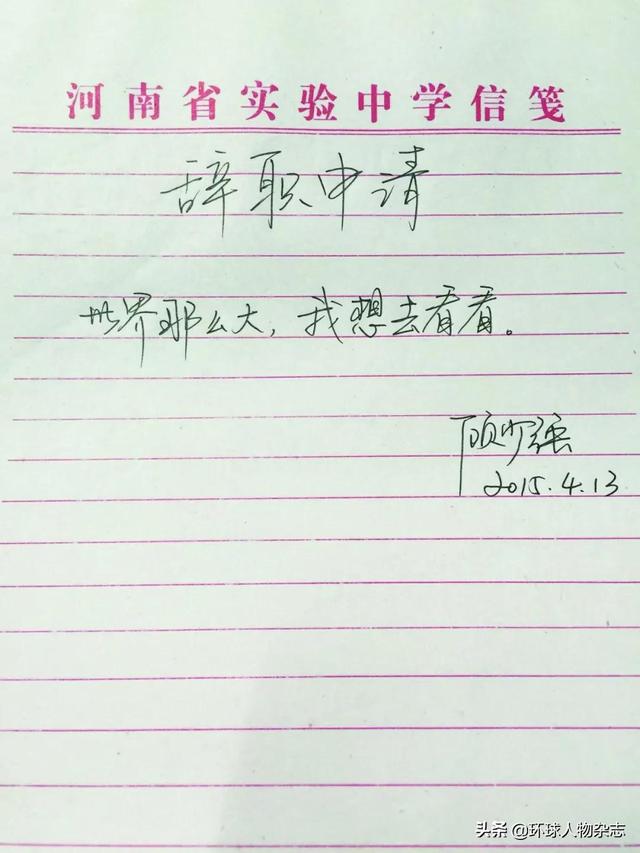 河南省实验中学信笺
辞职申请
世界那么大，我想去看看。
顾少强
2015.4.13
头条 @环球人物杂志